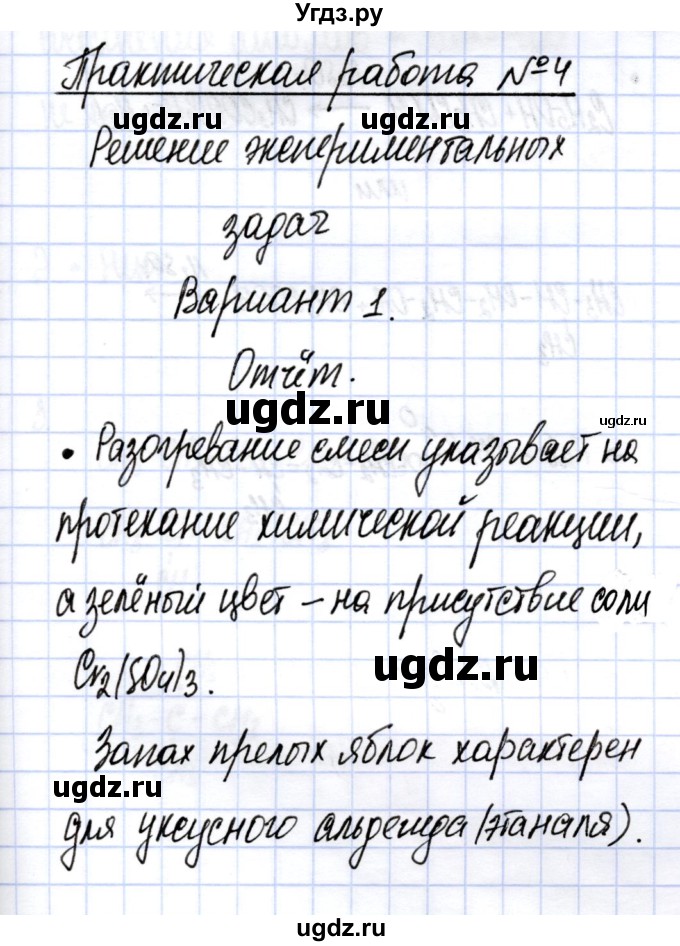 Угдз.ру
Практическая работа №4
ugdz.ru ugdz.ru
Решение экспериментальных
задач
Вариант 1.
Отчёт.
ugdz.ru
ugdz.ru
• Разогревание смеси указывает на
протекание химической реакции,
ugdz.ru
а зелёный цвет – на присутствие соли
ugdz.ru
Cr2(SO4)3.
Запах прелых яблок характерен
ugdz.ru
для уксусного альдегида (этаналя).
ugdz.ru